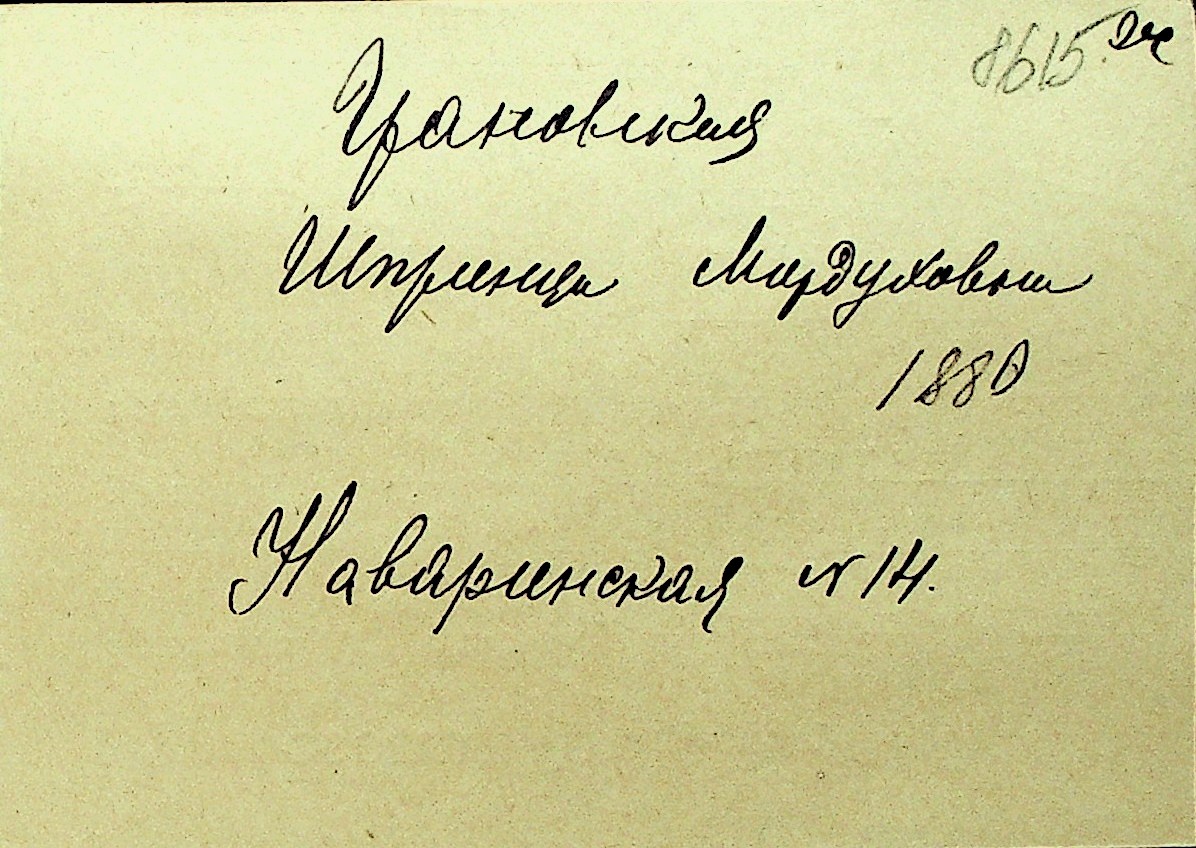 8615. эч
Грановская
Шпринца Мордуховна
1880
Наваринская № 14.